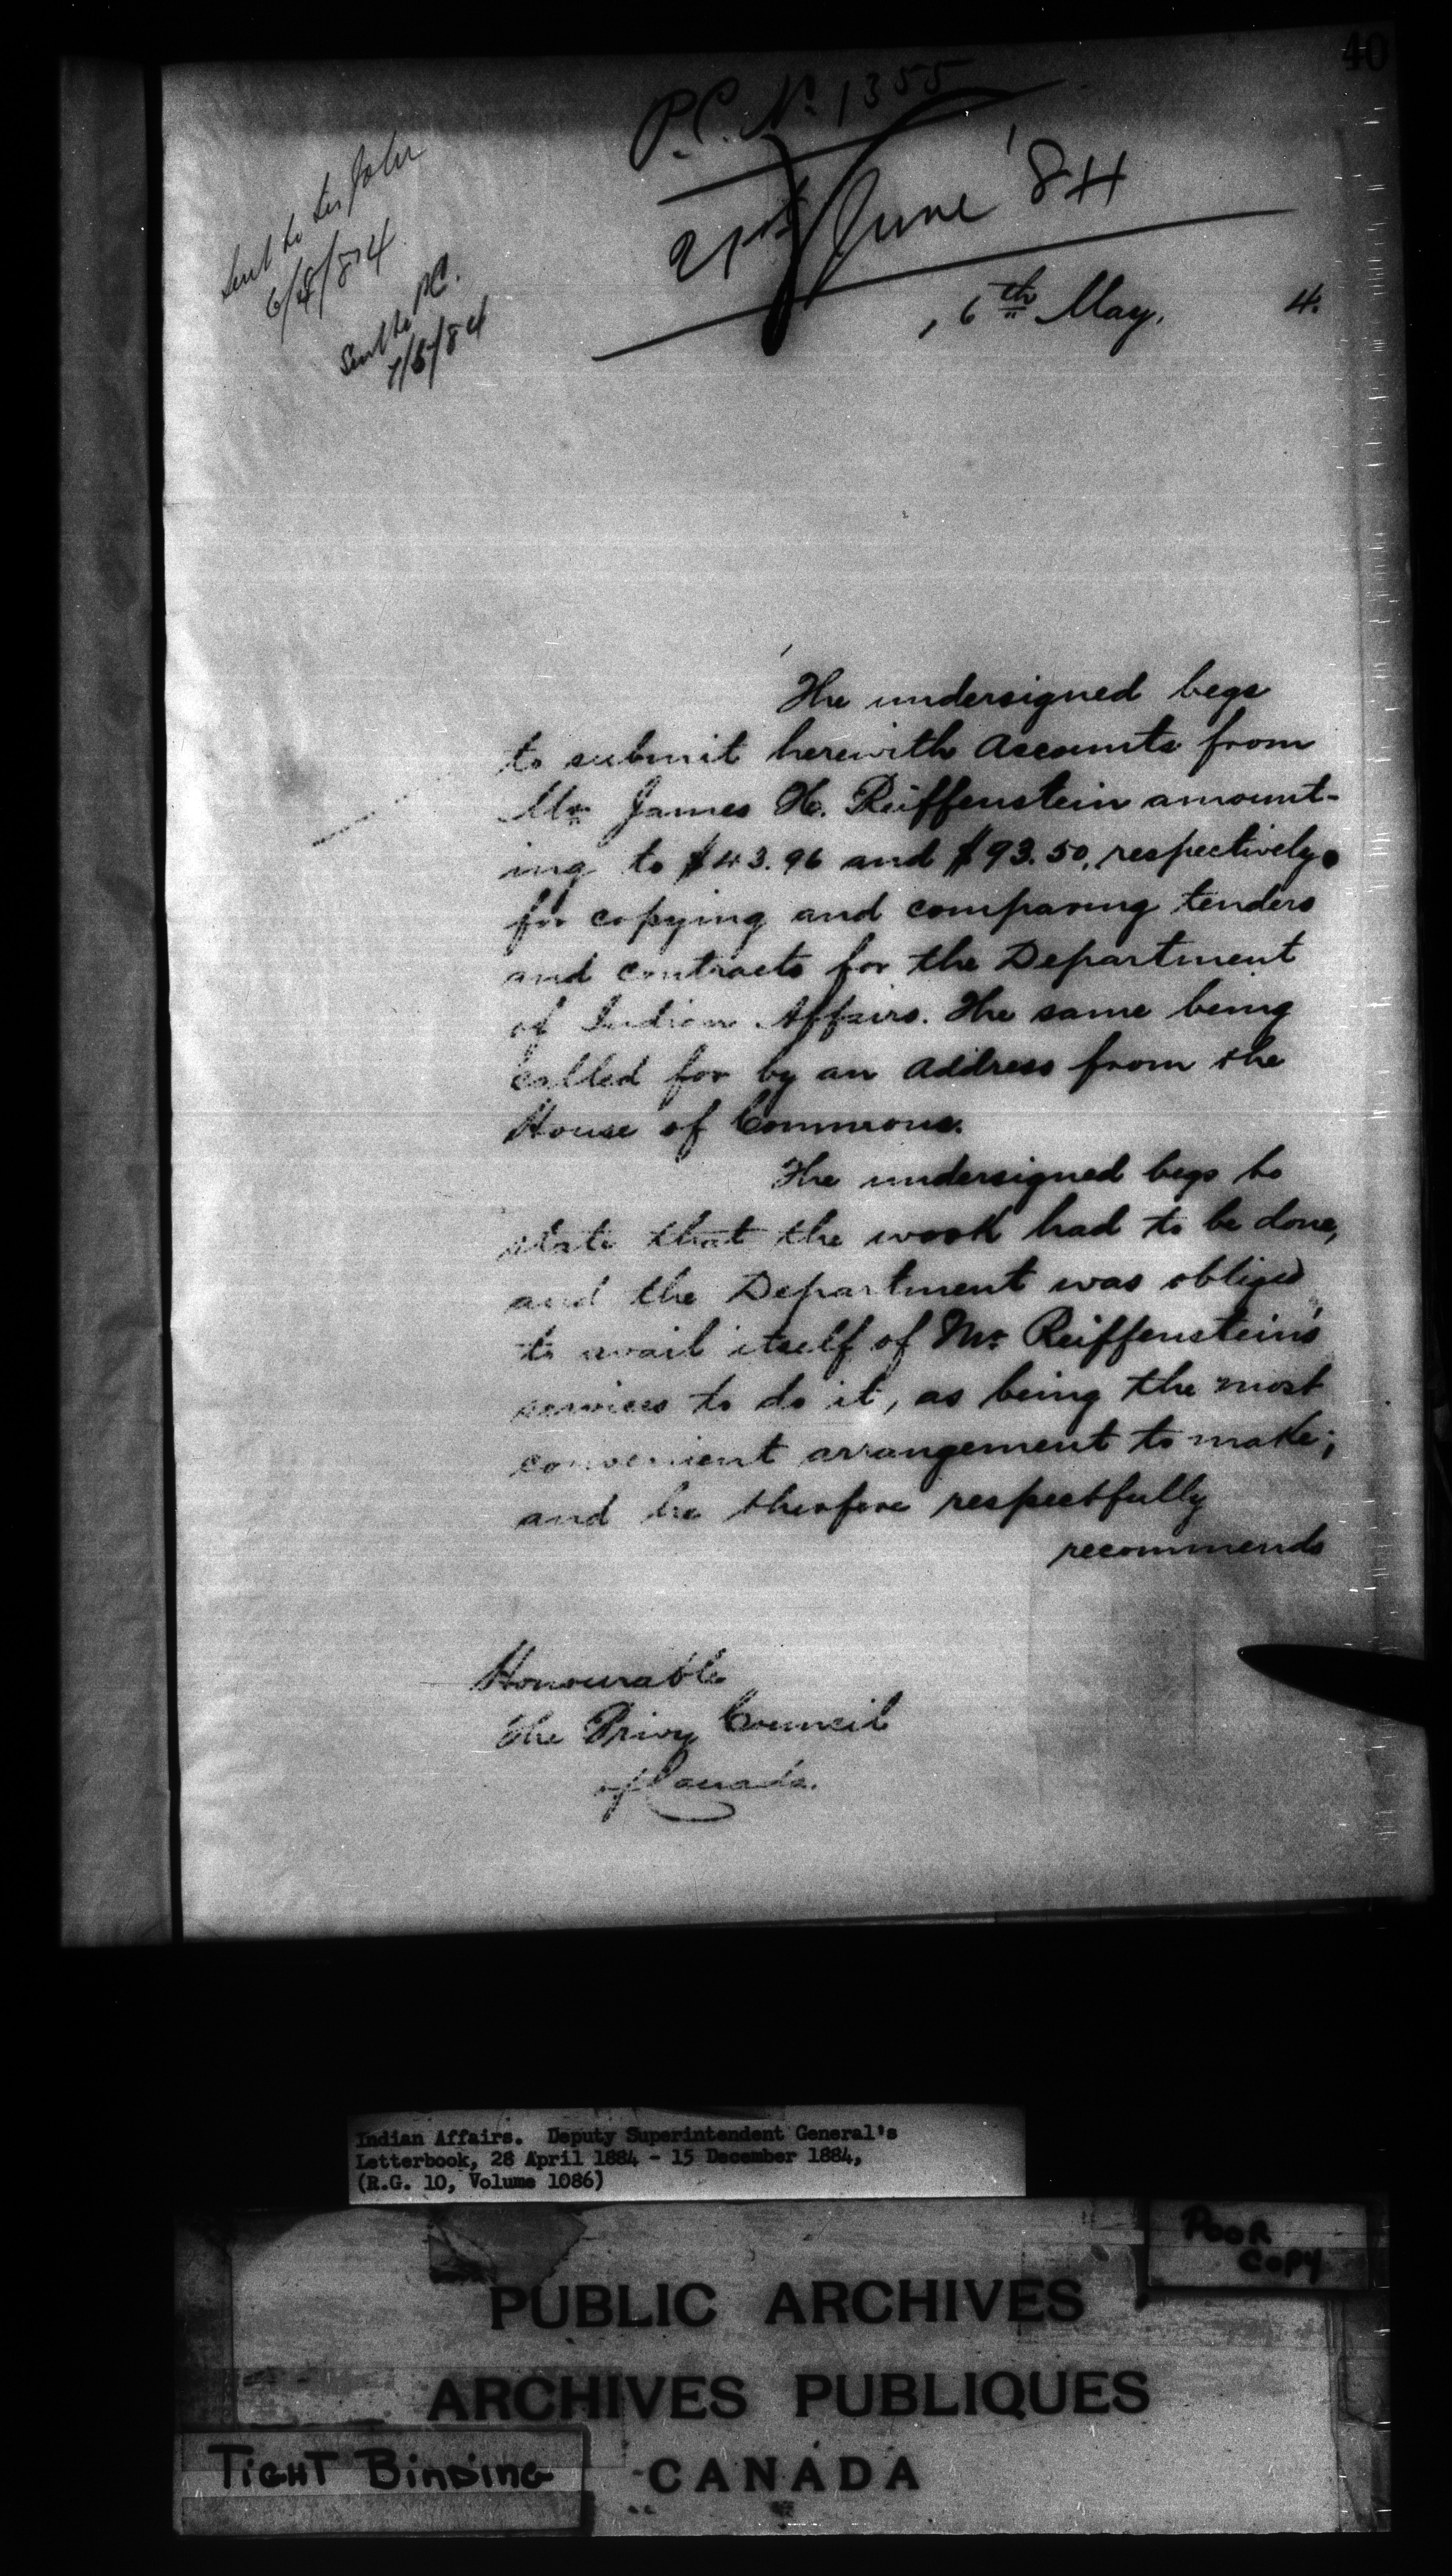 40
P.C. No. 1355
21st June '84
Sent to Sir John
6/5/84
Sent to P.C.
7/5/84
, 6th May, 4.
The undersigned begs
to submit herewith Accounts from
Mr James H. Reiffenstein amount-
ing to $43.96 and $93.50, respectively
for copying and comparing tenders
and contracts for the Department
of Indian Affairs. The same being
called for by an Address from the
House of Commons.
The undersigned begs to
state that the work had to be done,
and the Department was obliged
to avail itself of Mr Reiffenstein's
services to do it, as being the most
convenient arrangement to make;
and he therefore respectfully
recommends
Honourable
The Privy Council
of Canada.
Indian Affairs. Deputy Superintendent General's
Letterbook, 28 April 1884 - 15 December 1884,
(R.G. 10, Volume 1086)
POOR
COPY
PUBLIC ARCHIVES
ARCHIVES PUBLIQUES
CANADA
TIGHT BINDING